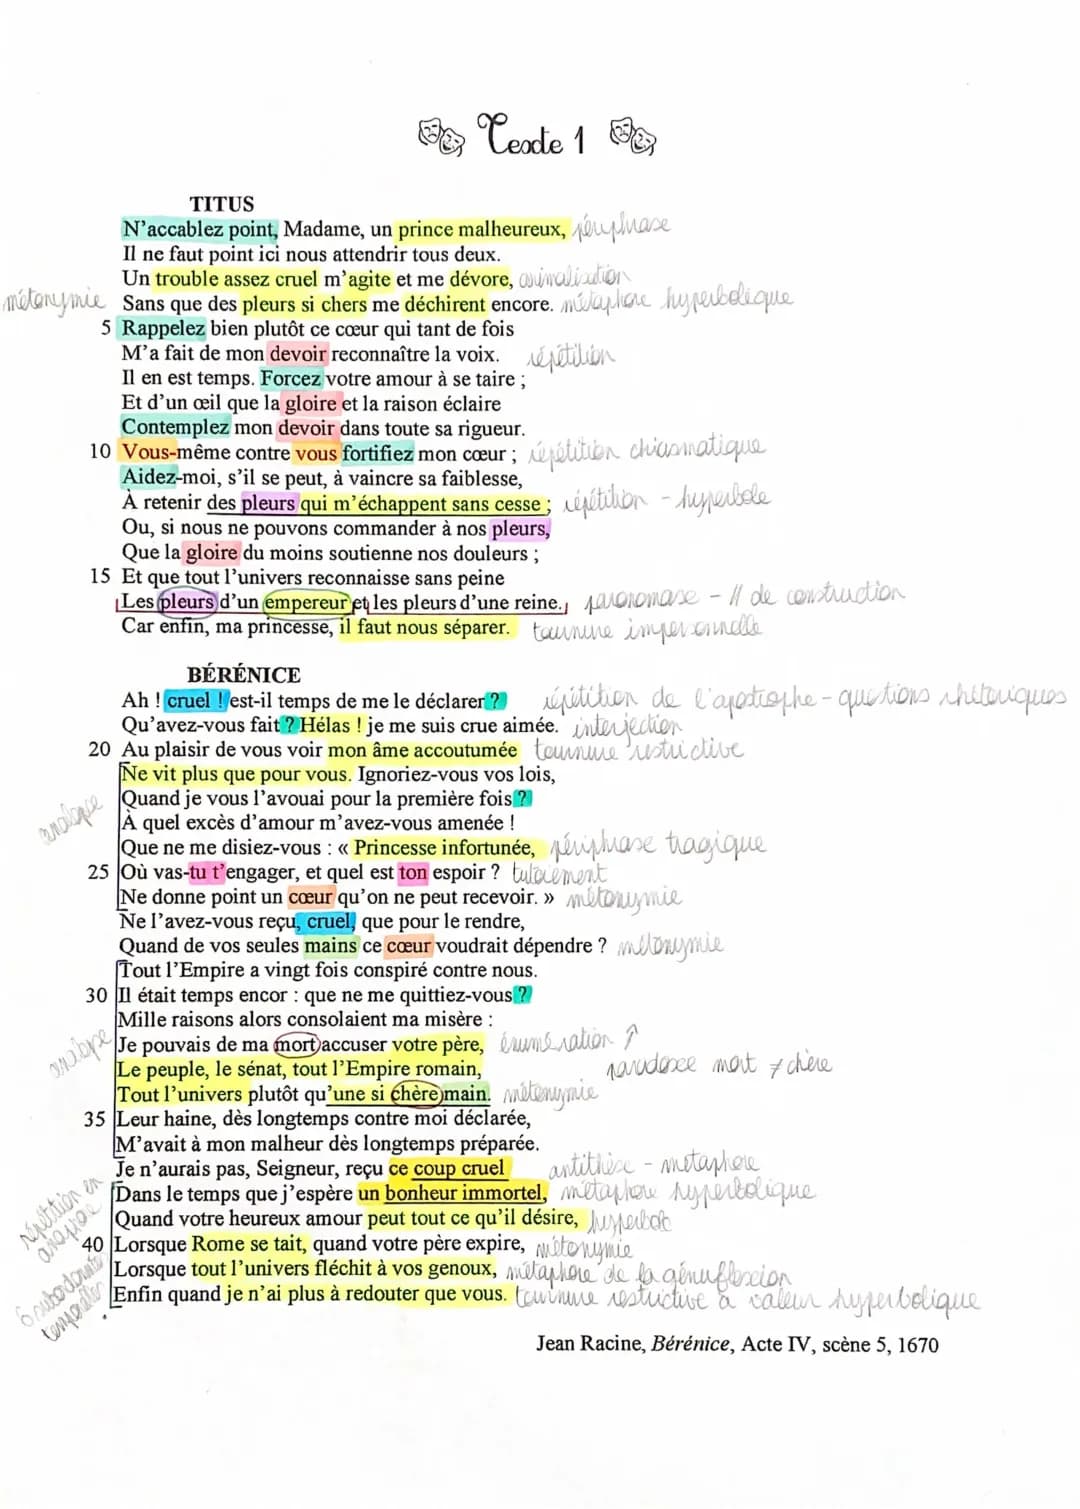 Texte 1
TITUS
N'accablez point, Madame, un prince malheureux, périphrase
Il ne faut point ici nous attendrir tous deux.
Un trouble assez cruel m'agite et me dévore, animalisation
métonymie Sans que des pleurs si chers me déchirent encore. métaphore hyperbolique
5 Rappelez bien plutôt ce cœur qui tant de fois
M'a fait de mon devoir reconnaître la voix. répétition
Il en est temps. Forcez votre amour à se taire ;
Et d'un œil que la gloire et la raison éclaire
Contemplez mon devoir dans toute sa rigueur.
10 Vous-même contre vous fortifiez mon cœur ; répétition chiasmatique
Aidez-moi, s'il se peut, à vaincre sa faiblesse,
À retenir des pleurs qui m'échappent sans cesse ; répétition - hyperbole
Ou, si nous ne pouvons commander à nos pleurs,
Que la gloire du moins soutienne nos douleurs ;
15 Et que tout l'univers reconnaisse sans peine
Les pleurs d'un empereur et les pleurs d'une reine. paronomase - // de construction
Car enfin, ma princesse, il faut nous séparer. tournure impersonnelle
BÉRÉNICE
Ah ! cruel ! est-il temps de me le déclarer ? répétition de l'apostrophe - questions rhétoriques
Qu'avez-vous fait ? Hélas ! je me suis crue aimée. interjection
20 Au plaisir de vous voir mon âme accoutumée tournure restrictive
Ne vit plus que pour vous. Ignoriez-vous vos lois,
Quand je vous l'avouai pour la première fois ?
analepse À quel excès d'amour m'avez-vous amenée !
Que ne me disiez-vous : « Princesse infortunée, périphrase tragique
25 Où vas-tu t'engager, et quel est ton espoir ? tutoiement
Ne donne point un cœur qu'on ne peut recevoir. » métonymie
Ne l'avez-vous reçu, cruel, que pour le rendre,
Quand de vos seules mains ce cœur voudrait dépendre ? métonymie
Tout l'Empire a vingt fois conspiré contre nous.
30 Il était temps encor : que ne me quittiez-vous ?
Mille raisons alors consolaient ma misère :
analepse Je pouvais de ma mort accuser votre père, énumération ↑
Le peuple, le sénat, tout l'Empire romain, paradoxe mort ≠ chère
Tout l'univers plutôt qu'une si chère main. métonymie
35 Leur haine, dès longtemps contre moi déclarée,
M'avait à mon malheur dès longtemps préparée.
Je n'aurais pas, Seigneur, reçu ce coup cruel antithèse - métaphore
Dans le temps que j'espère un bonheur immortel, métaphore hyperbolique
Quand votre heureux amour peut tout ce qu'il désire, hyperbole
répétition en
40 Lorsque Rome se tait, quand votre père expire, métonymie
Lorsque tout l'univers fléchit à vos genoux, métaphore de la génuflexion
Enfin quand je n'ai plus à redouter que vous. tournure restrictive à valeur hyperbolique
6 subordonnées
temporelles
Jean Racine, Bérénice, Acte IV, scène 5, 1670